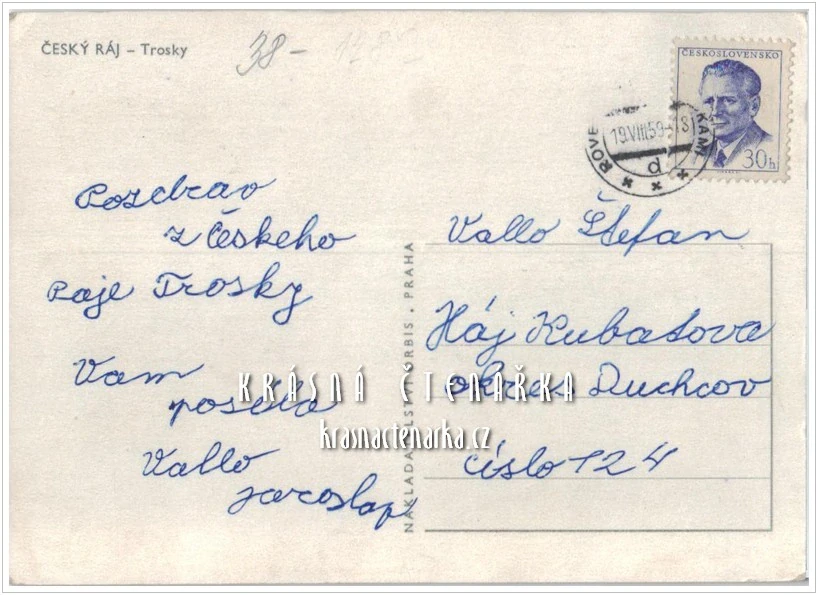 ČESKÝ RÁJ – Trosky
38–
ČESKOSLOVENSKO
30h
ROVE
19.VIII.59-18
KAMI
d
Pozdrav
z Českeho
Raje Trosky
Vam
posila
Vallo
Jaroslav
NAKLADATELSTVÍ ORBIS, PRAHA
Vallo Štefan
Háj Kubatova
okres Duchcov
číslo 124
KRÁSNÁ ČTENÁŘKA
krasnactenarka.cz